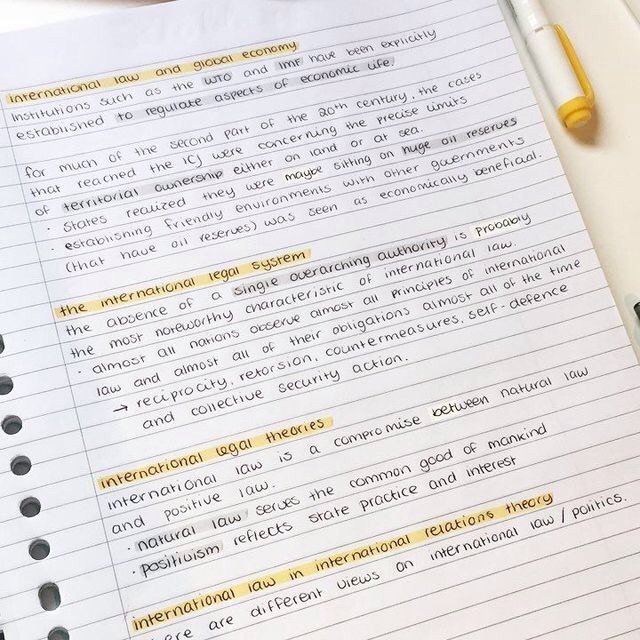 international law and global economy
institutions such as the WTO and IMF have been explicitly
established to regulate aspects of economic life
for much of the second part of the 20th century, the cases
that reached the ICJ were concerning the precise limits
of territorial ownership either on land or at sea.
· states realized they were maybe sitting on huge oil reserves
· establishing friendly environments with other governments
(that have oil reserves) was seen as economically beneficial.
the international legal system
the absence of a single overarching authority is probably
the most noteworthy characteristic of international law.
· almost all nations observe almost all principles of international
law and almost all of their obligations almost all of the time
→ reciprocity, retorsion, countermeasures, self-defence
and collective security action.
international legal theories
international law is a compromise between natural law
and positive law.
· natural law serves the common good of mankind
· positivism reflects state practice and interest
international law in international relations theory
are different views on international law / politics.